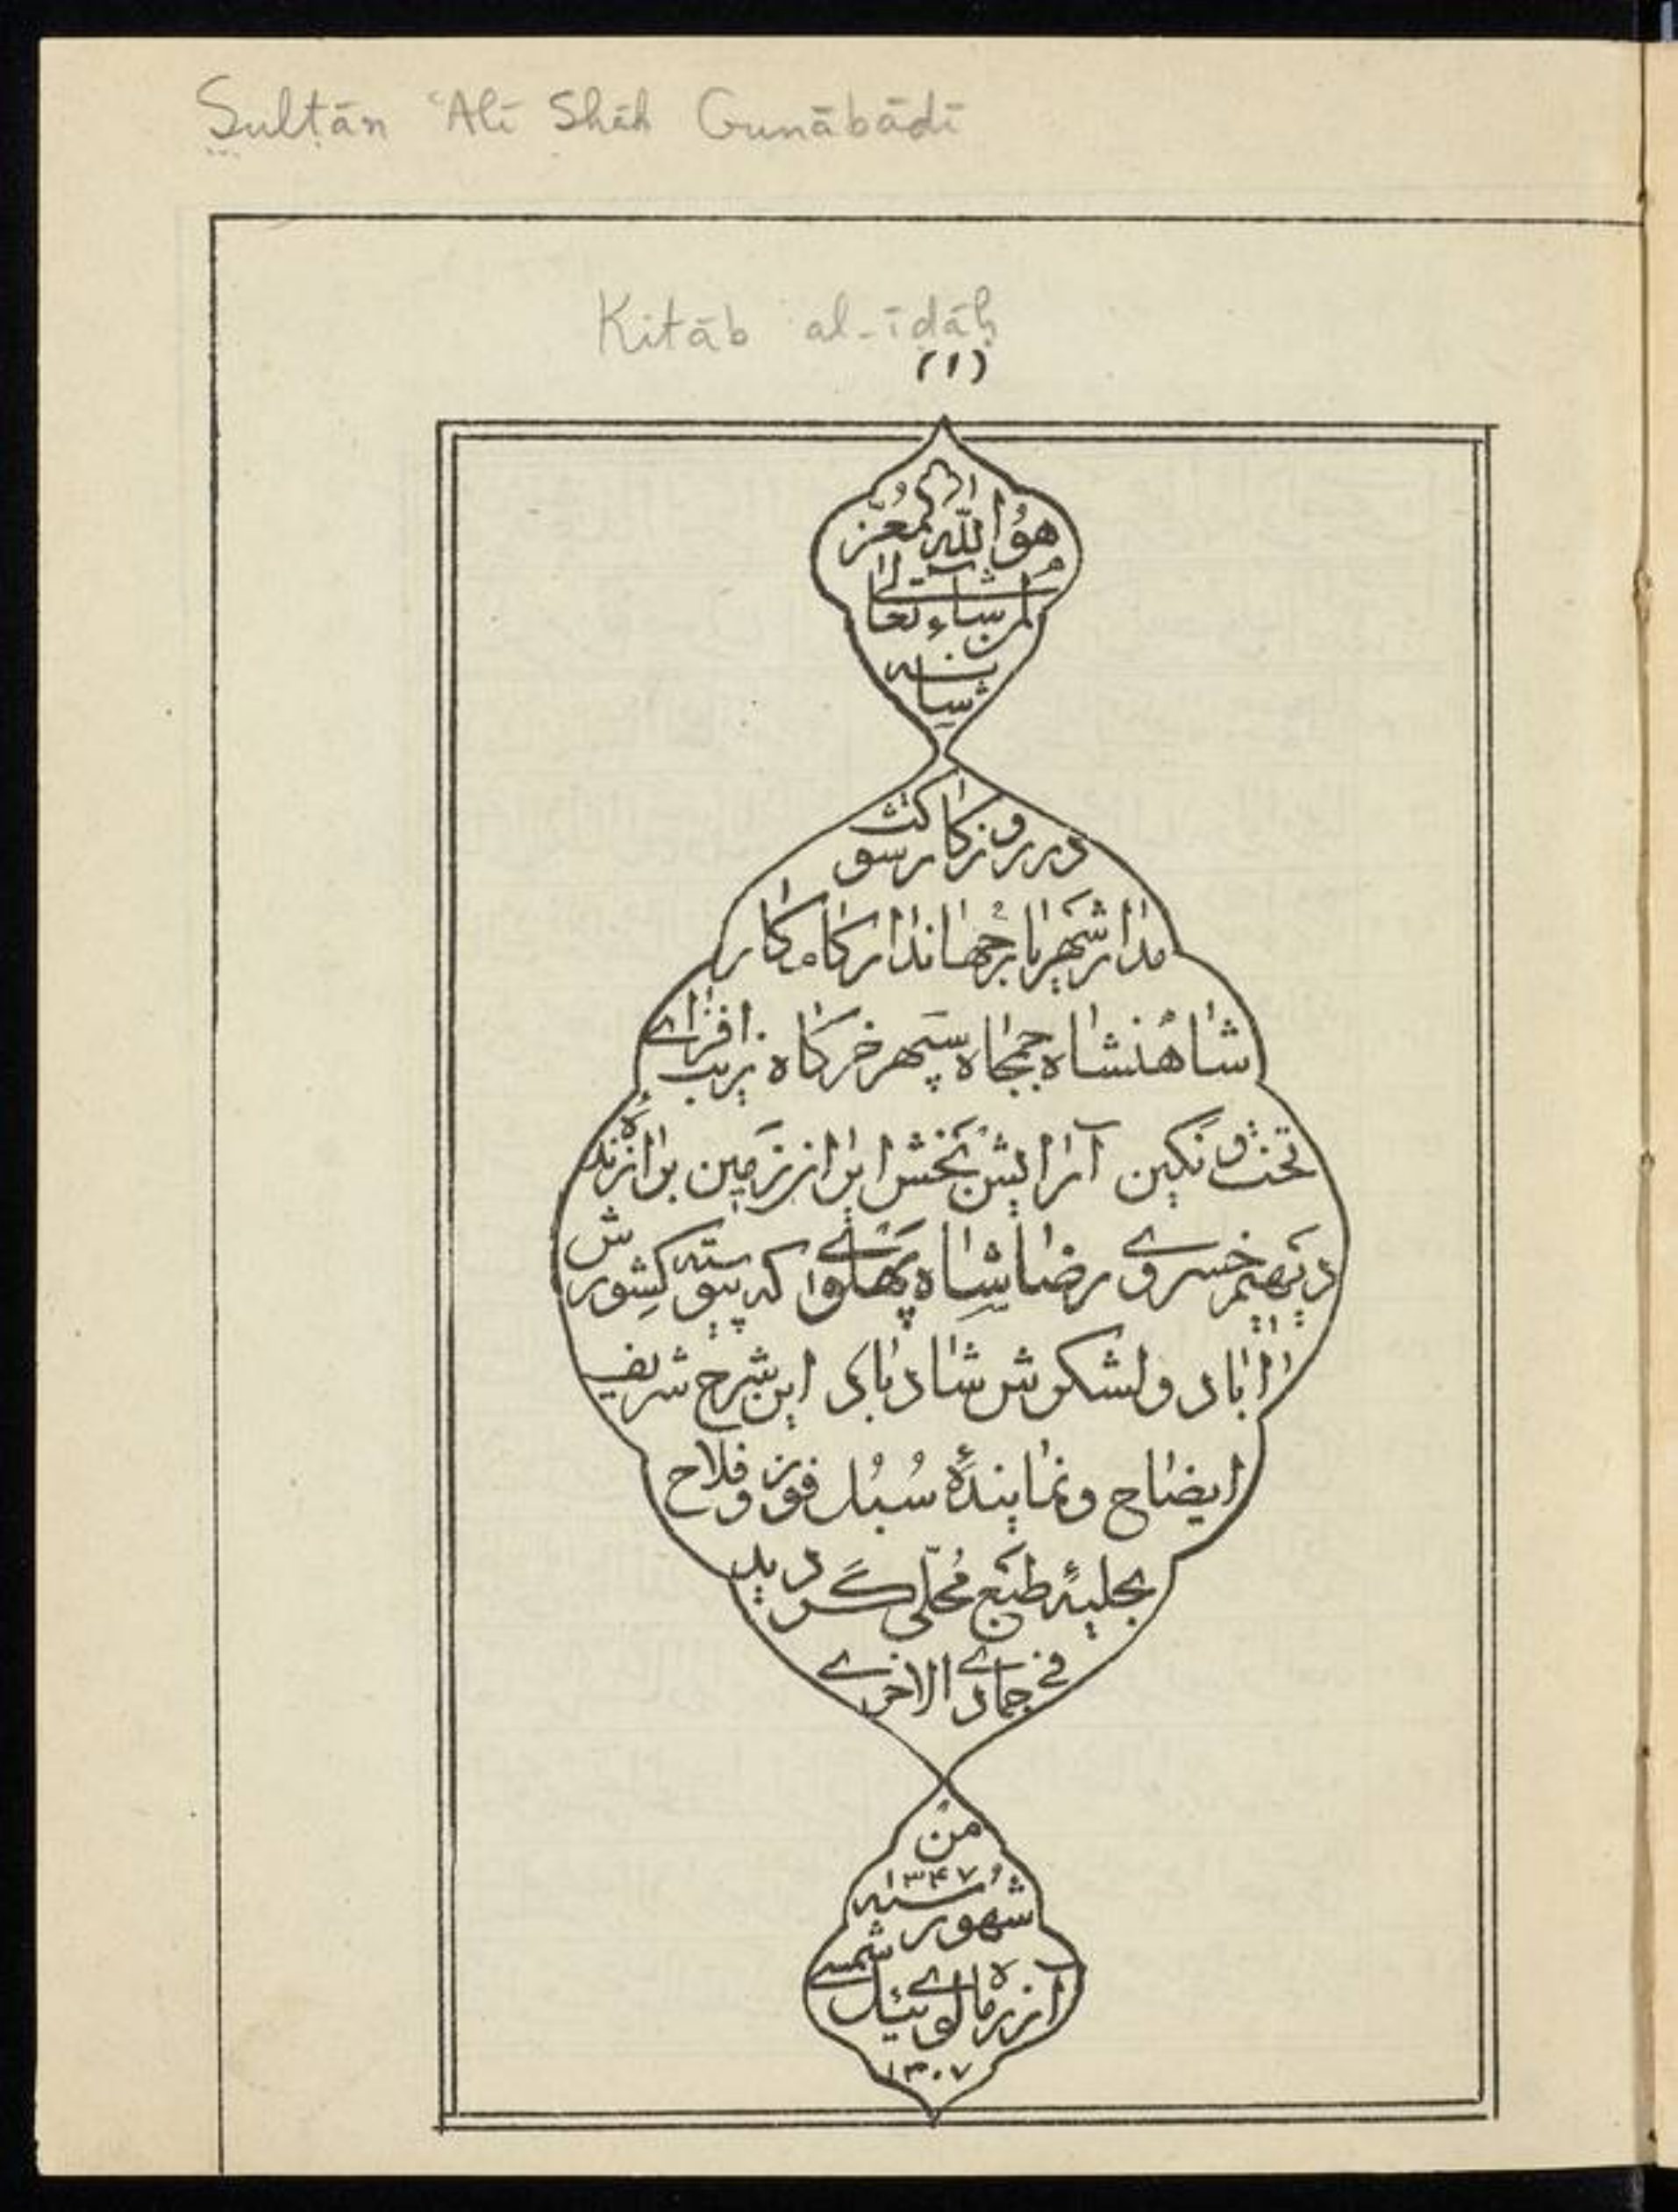 Sulṭān ʿAlī Shāh Gunābādī
Kitāb al-īḍāḥ
(۱)
هُو اللّٰه المعزّ
لمن یشاء تعالی
شانه
در روزکار کشور
مدار شهریار جهاندار کامکار
شاهنشاه جمجاه سپهر خرکاه زیب افزای
تخت و نکین آرایش بخش ایران زمین برازندهٔ
دیهیم خسروی رضا شاه پهلوی که پیوسته کشورش
اباد و لشکرش شاد باد این شرح شریف
ایضاح و نمایندهٔ سُبُل فوز و فلاح
بحلیهٔ طبع مُحلّی گردید
فی جمادی الاخری
من
شهور سنه ۱۳۴۷
آذر ماه لوی ئیل شمسی
۱۳۰۷